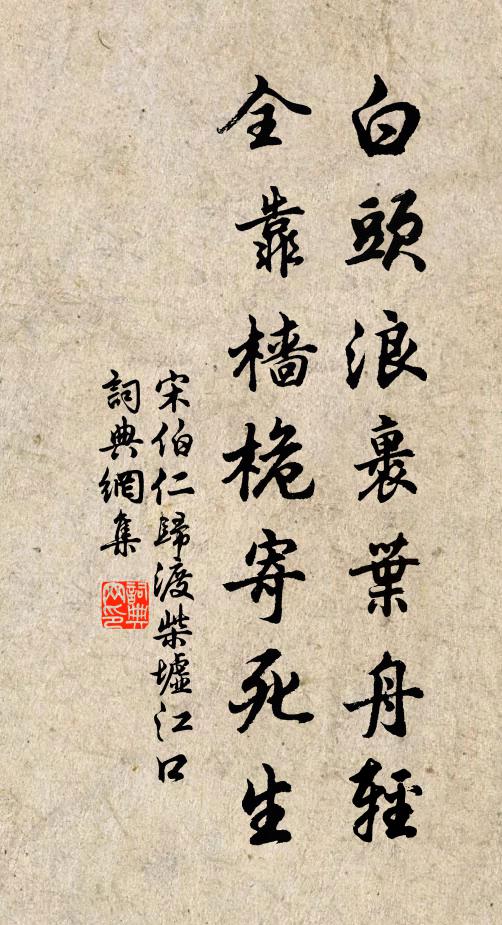 白頭浪裹葉舟輕
全靠檣桅寄死生
宋伯仁歸渡柴墟江口
詞典網集
詞典網印